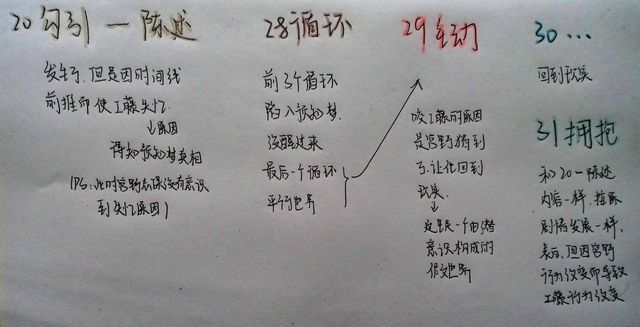 20 勾引 — 陈述
发生了,但是因时间线
前推而使工藤失忆
↓原因
得知预知梦真相
(PS:此时宫野志保没有意识
到失忆原因)
28 循环
前3个循环
陷入预知梦
没醒过来
最后一个循环
平行世界
29 主动
咬工藤的原因
是宫野猜到
了,让他回到
现实
↓
这里是一个由潜
意识构成的
假世界
30 ...
回到现实
31 拥抱
和20—陈述
内容一样,按原
剧情发展一样,
表白,但因宫野
行为改变而导致
工藤行为改变